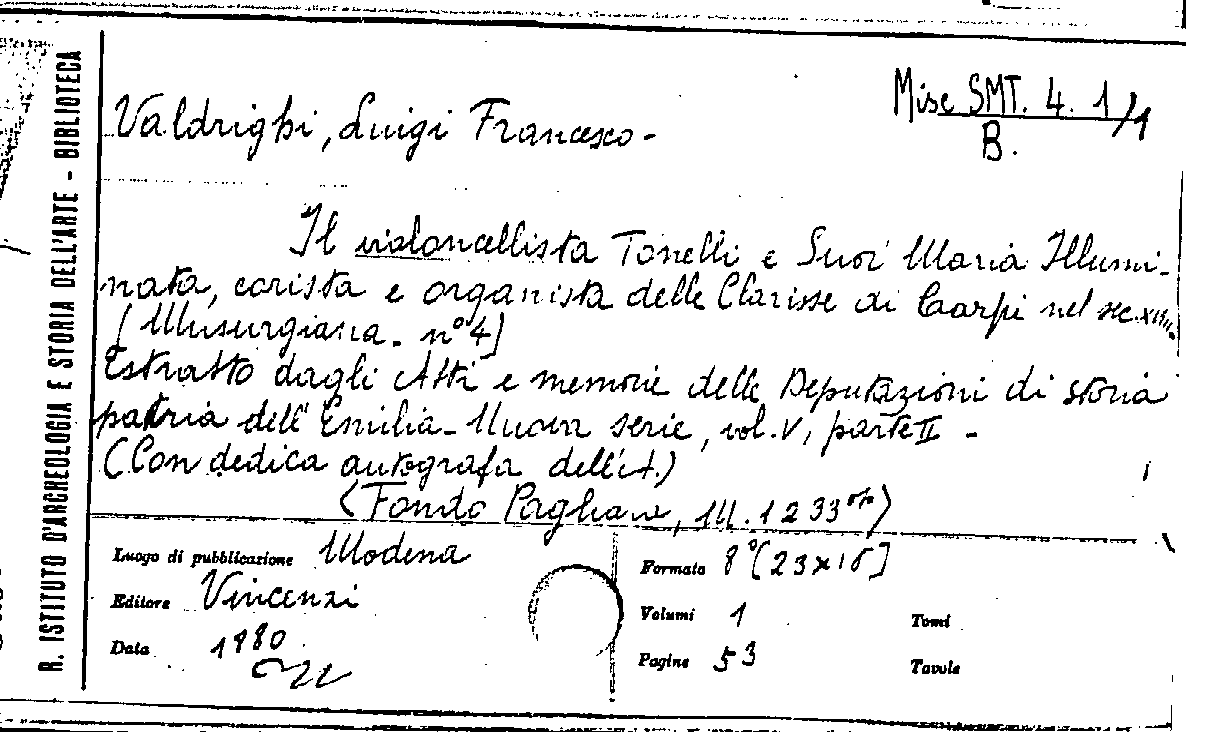 R. ISTITUTO D'ARCHEOLOGIA E STORIA DELL'ARTE - BIBLIOTECA
Misc SMT. 4. 1/1
B.
Valdrighi, Luigi Francesco -
Il violoncellista Tonelli e Suor Maria Illumi-
nata, corista e organista delle Clarisse di Carpi nel sec. XVIII.
[Musurgiana - n° 4]
Estratto dagli Atti e memorie delle Deputazioni di storia
patria dell'Emilia - Nuova serie, vol. V, parte II -
(Con dedica autografa dell'A.)
(Fondo Pagliara, M. 1233)
Luogo di pubblicazione Modena
Editore Vincenzi
Data 1880
Formato 8° [23x16]
Volumi 1
Tomi
Pagine 53
Tavole